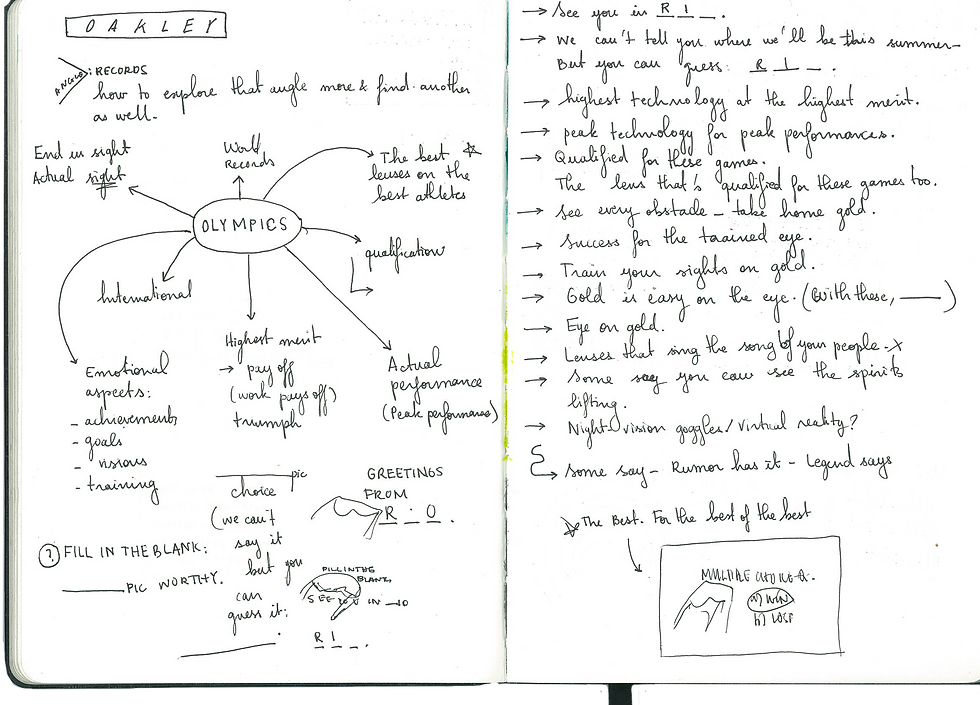 OAKLEY
ANGLE: RECORDS
how to explore that angle more & find another
as well-
End in sight
Actual sight
World
Records
The best ☆
lenses on the
best athletes
OLYMPICS
qualification
International
Highest merit
→ pay off
(work pays off)
triumph
Actual
performance
(Peak performance)
Emotional
aspects:
- achievements
- goals
- visions
- training
_____pic
choice
(we can't
say it
but you
can
guess it:
_____.
GREETINGS
FROM
R . O .
? FILL IN THE BLANK:
_____ PIC WORTHY.
FILL IN THE
BLANK
SEE YOU IN _O
R I _ .
→ See you in R I _ .
→ We can't tell you where we'll be this summer-
But you can guess: R I _ .
→ highest technology at the highest merit.
→ peak technology for peak performances.
→ Qualified for these games.
The lens that's qualified for these games too.
→ See every obstacle - take home gold.
→ Success for the trained eye.
→ Train your sights on gold.
→ Gold is easy on the eye. (With these, ____)
→ Eye on gold.
→ Lenses that sing the song of your people -x
→ Some say you can see the spirits
lifting.
→ Night-vision goggles/virtual reality?
→ Some say - Rumor has it - Legend says
☆ The Best. For the best of the best
MULTIPLE CHOICE
a) WIN
b) LOSE